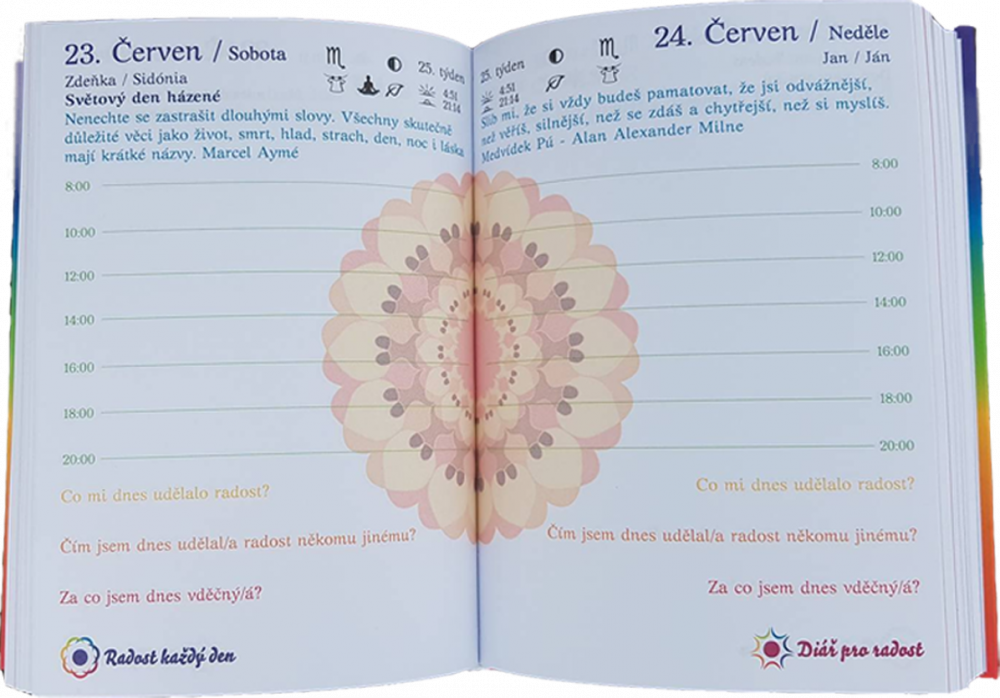 23. Červen / Sobota
Zdeňka / Sidónia
Světový den házené
25. týden
4:51
21:14
Nenechte se zastrašit dlouhými slovy. Všechny skutečně
důležité věci jako život, smrt, hlad, strach, den, noc i láska
mají krátké názvy. Marcel Aymé
8:00
10:00
12:00
14:00
16:00
18:00
20:00
Co mi dnes udělalo radost?
Čím jsem dnes udělal/a radost někomu jinému?
Za co jsem dnes vděčný/á?
Radost každý den
24. Červen / Neděle
Jan / Ján
25. týden
4:51
21:14
Slib mi, že si vždy budeš pamatovat, že jsi odvážnější,
než věříš, silnější, než se zdáš a chytřejší, než si myslíš.
Medvídek Pú - Alan Alexander Milne
8:00
10:00
12:00
14:00
16:00
18:00
20:00
Co mi dnes udělalo radost?
Čím jsem dnes udělal/a radost někomu jinému?
Za co jsem dnes vděčný/á?
Diář pro radost